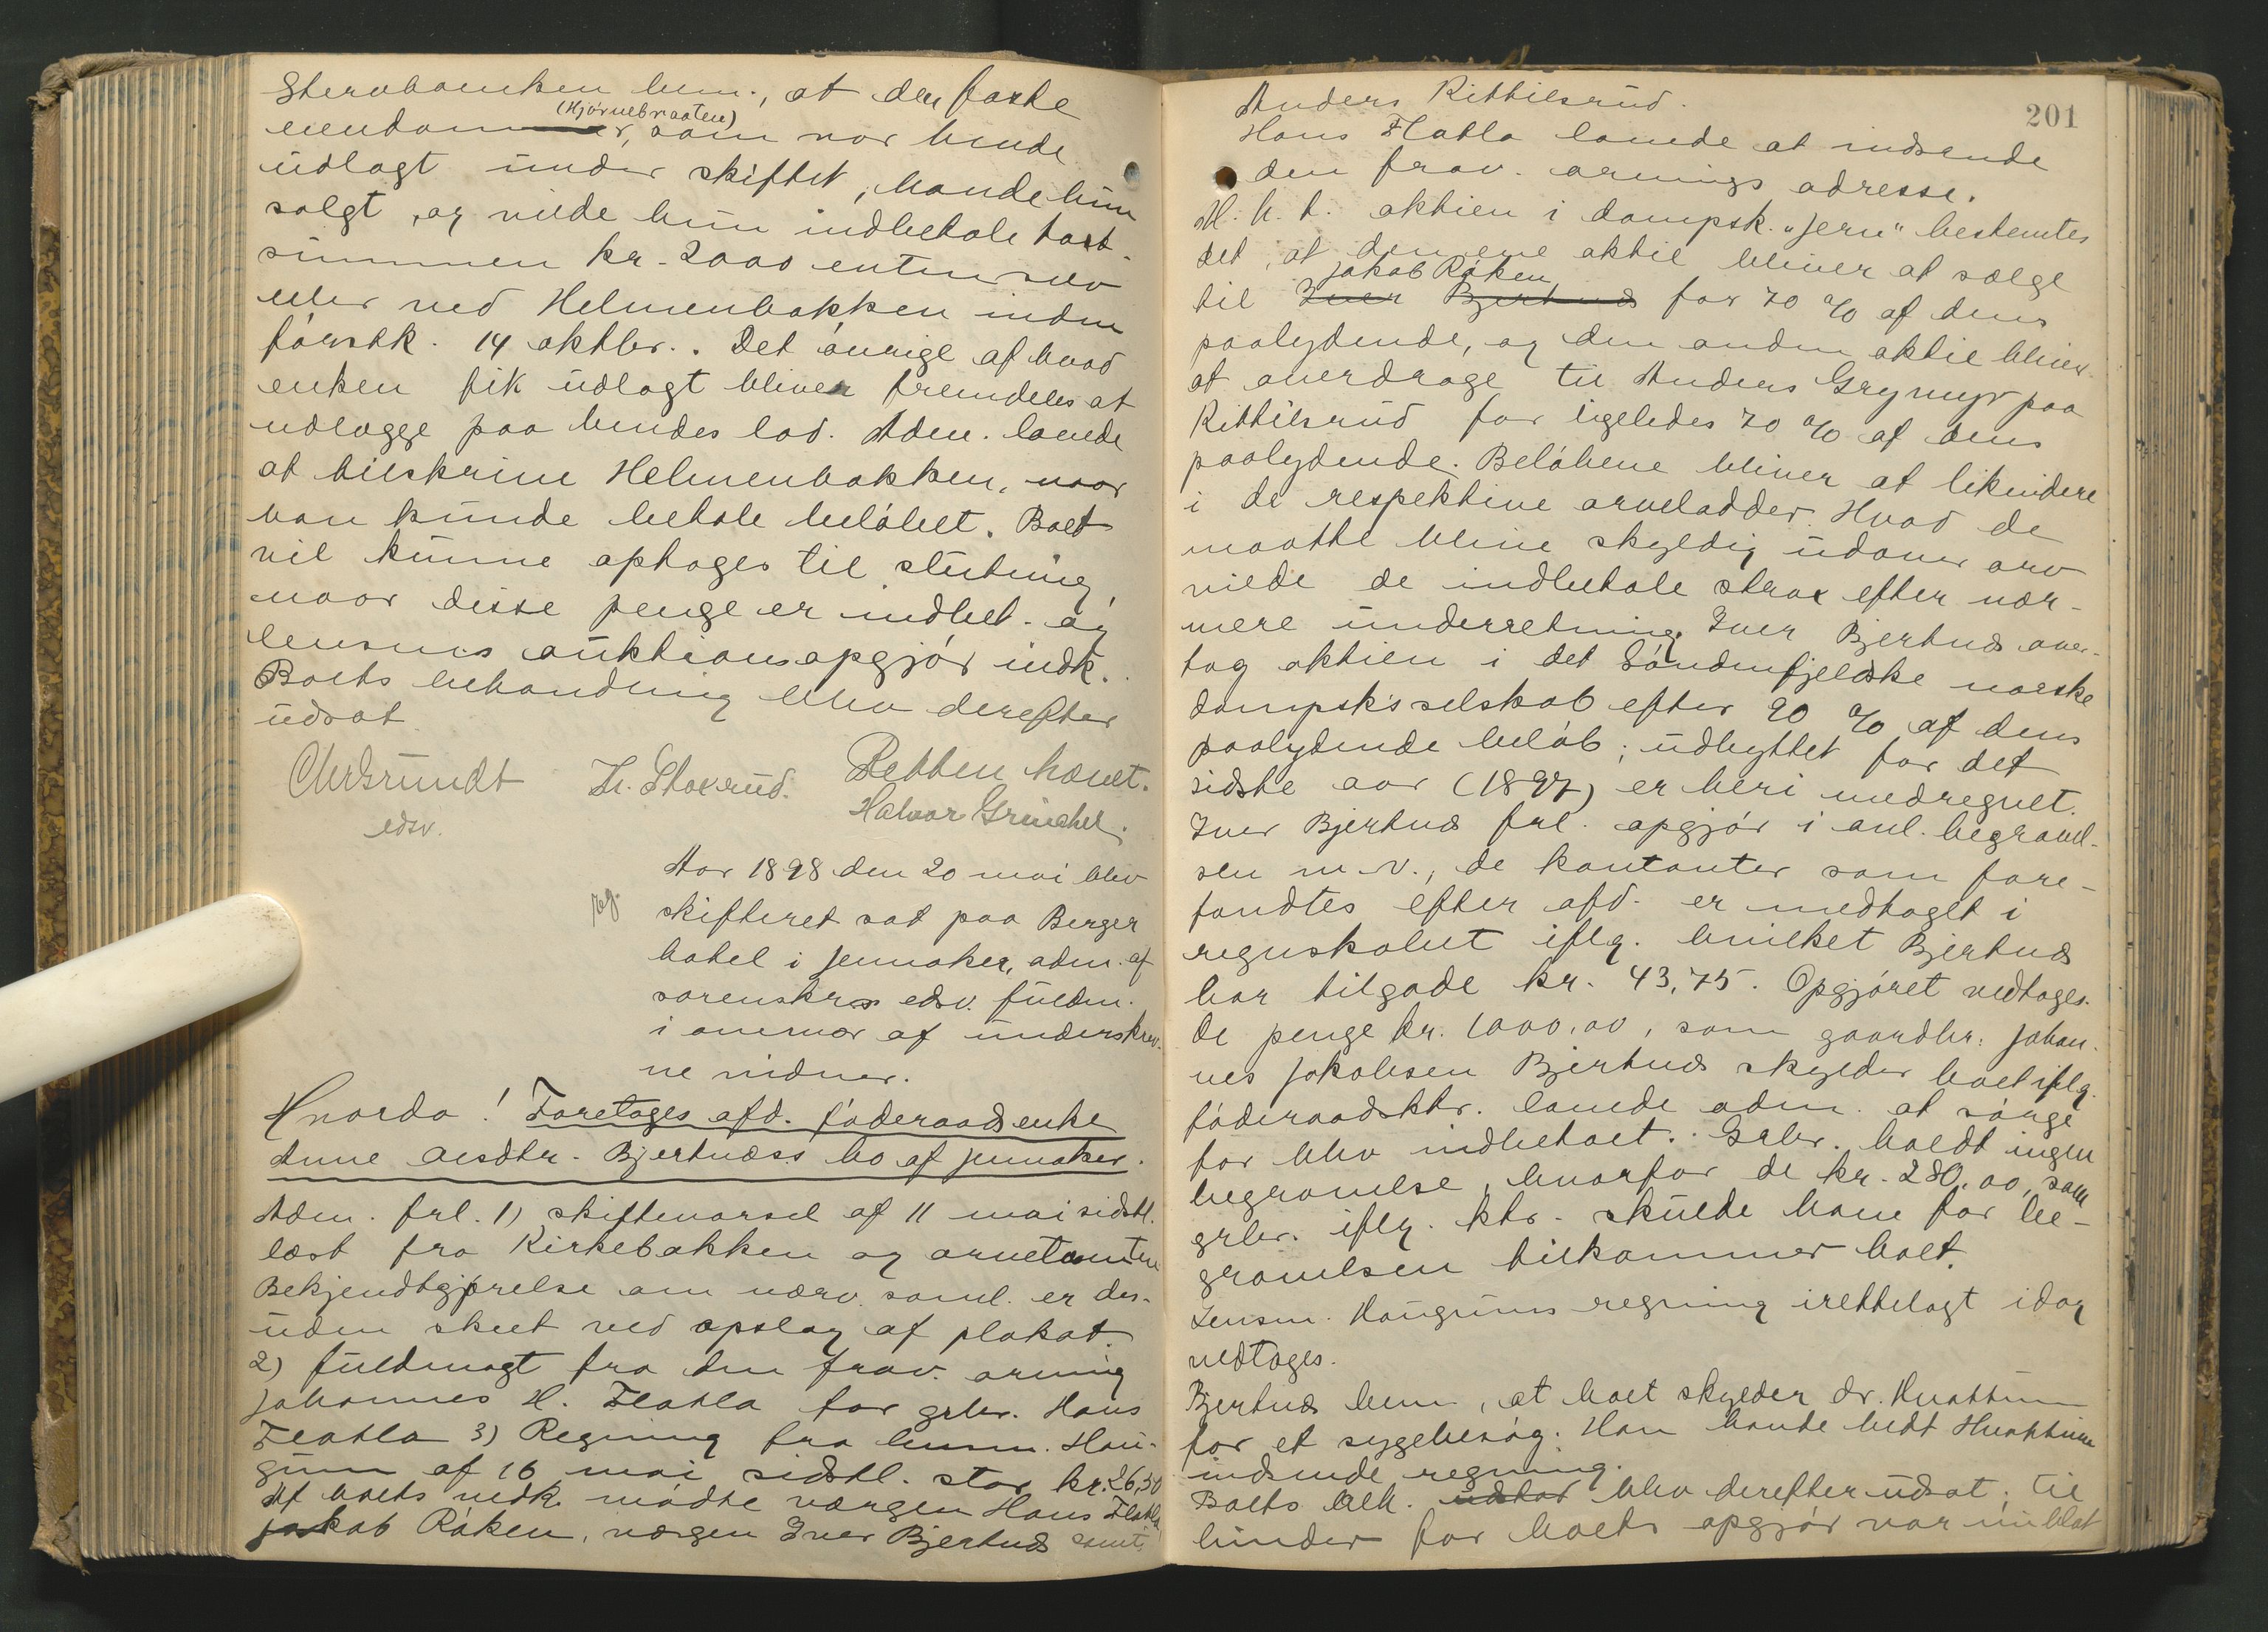 bem., at den faste
(Hjørnebraaten)
eiendommer, som var hende
udlagt under skiftet, havde hun
solgt, og vilde hun indbetale tast-
summen kr. 2000 enten selv
eller ved Helmenbakken inden
førstk. 14 oktbr.. Det øvrige af hvad
enken fik udlagt bliver fremdeles at
udlægge paa hendes lod. Adm. lovede
at tilskrive Helmenbakken, naar
han kunde betale beløbet. Boet
vil kunne optages til slutning,
naar disse penge er indbet. og
lensms auktionsopgjør indk.
Boets behandling blev derefter
udsat
Chr Grundt H. Stoxrud. Rebben hævet.
edsv. Halvor Grinaker.
Aar 1898 den 20 mai blev
rg. skifteret sat paa Berger
hotel i Jevnaker, adm. af
sorenskrs edsv. fuldm.
i overvær af underskrev-
ne vidner.
Hvorda! Foretages afd. føderaadsenke
Anne Olsdtr. Bjertnæss bo af Jevnaker.
Adm. frl. 1) skiftevarsel af 11 mai sidstl.
læst fra Kirkebakken og arvetomten
Bekjendtgjørelse om nærv. saml. er des-
uden skeet ved opslag af plakat.
2) fuldmagt fra den frav. arving
Johannes H. Flatla for grbr. Hans
Flatla 3) Regning fra lensm. Hau-
grim af 16 mai sidstl. stor kr. 26,50
Af boets vedk. mødte værgen Hans Flatla
Jakob Røken, værgen Iver Bjertnæs samt
201
Anders Kittilsrud.
Hans Flatla lovede at indsende
den frav. arvings adresse.
M. h. t. aktien i dampsk. "Jern" bestemtes
det, at den ene aktie bliver at sælge
Jakob Røken
til Iver Bjertnæs for 70 % af dens
paalydende, og den anden aktie bliver
at overdrage til Anders Grymyr paa
Kittilsrud for ligeledes 70 % af dens
paalydende. Beløbene bliver at likvidere
i de respektive arvelodder. Hvad de
maatte blive skyldig udover arv
vilde de indbetale strax efter nær-
mere underretning. Iver Bjertnæs over-
tog aktien i det Søndenfjeldske norske
dampsk's selskab efter 90 % af dens
paalydende beløb; udbyttet for det
sidste aar (1897) er heri medregnet.
Iver Bjertnæs frl. opgjør i anl. begravel-
sen m. v., de kontanter som fore-
fandtes efter afd. er medtaget i
regnskabet iflg. hvilket Bjertnæs
har tilgode kr. 43,75. Opgjøret vedtages.
De penge kr. 1000,00, som gaardbr. Johan-
nes Jakobsen Bjertnæs skylder boet iflg.
føderaadsktr. lovede adm. at sørge
for blev indbetalt. Grbr. holdt ingen
begravelse, hvorfor de kr. 280,00, som
grbr. iflg. ktr. skulde have for be-
gravelsen tilkommer boet.
Lensm. Haugrims regning irettelagt idag
vedtages.
Bjertnæs bem., at boet skylder dr. Hvattum
for et sygebesøg. Han havde bedt Hvattum
indsende regning.
Boets beh. udsat blev derefter udsat; til
hinder for boets opgjør var nu blot